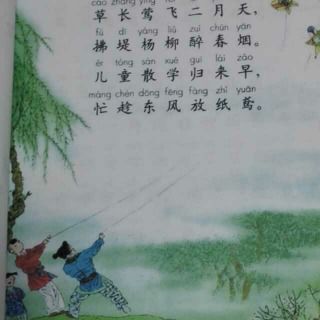 cǎo zhǎng yīng fēi èr yuè tiān
草长莺飞二月天，
fú dī yáng liǔ zuì chūn yān
拂堤杨柳醉春烟。
ér tóng sàn xué guī lái zǎo
儿童散学归来早，
máng chèn dōng fēng fàng zhǐ yuān
忙趁东风放纸鸢。